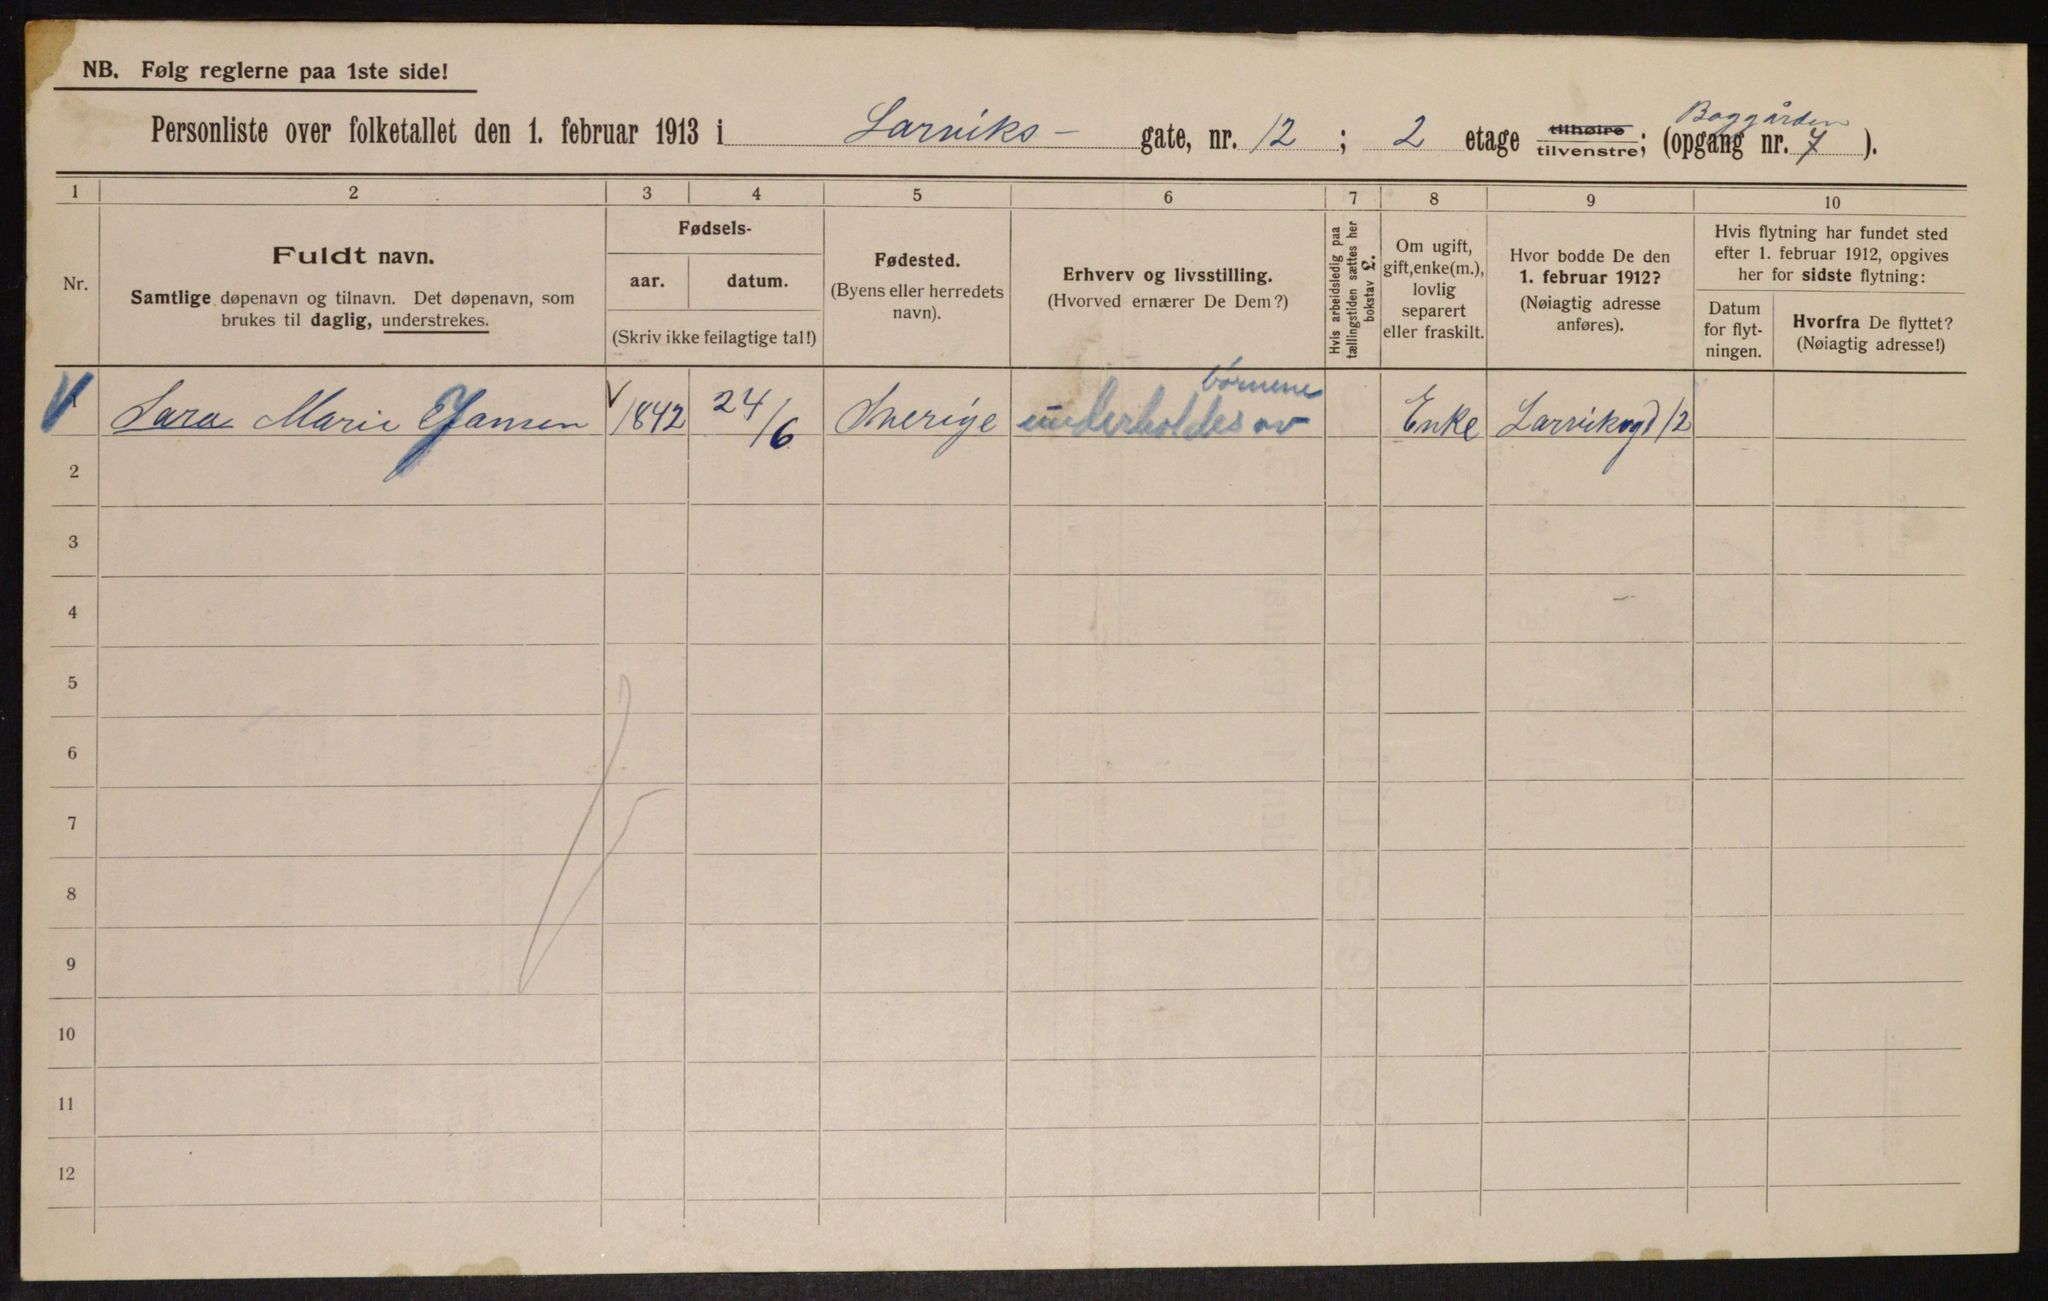 NB. Følg reglerne paa 1ste side!
Baggården
Personliste over folketallet den 1. februar 1913 i Larviks- gate, nr. 12 ; 2 etage tilhøire tilvenstre; (opgang nr. 7 ).
1 2 3 4 5 6 7 8 9 10
Nr.
Fuldt navn.
Samtlige døpenavn og tilnavn. Det døpenavn, som
brukes til daglig, understrekes.
Fødsels-
aar. datum.
(Skriv ikke feilagtige tal!)
Fødested.
(Byens eller herredets
navn).
Erhverv og livsstilling.
(Hvorved ernærer De Dem?)
Hvis arbeidsledig paa
tællingstiden sættes her
bokstav £.
Om ugift,
gift, enke(m.),
lovlig
separert
eller fraskilt.
Hvor bodde De den
1. februar 1912?
(Nøiagtig adresse
anføres).
Hvis flytning har fundet sted
efter 1. februar 1912, opgives
her for sidste flytning:
Datum
for flyt-
ningen.
Hvorfra De flyttet?
(Nøiagtig adresse!)
børnene
1 Sara Marie Jansen 1842 24/6 Sverige underholdes av Enke Larviksgd 12
2
3
4
5
6
7
8
9
10
11
12